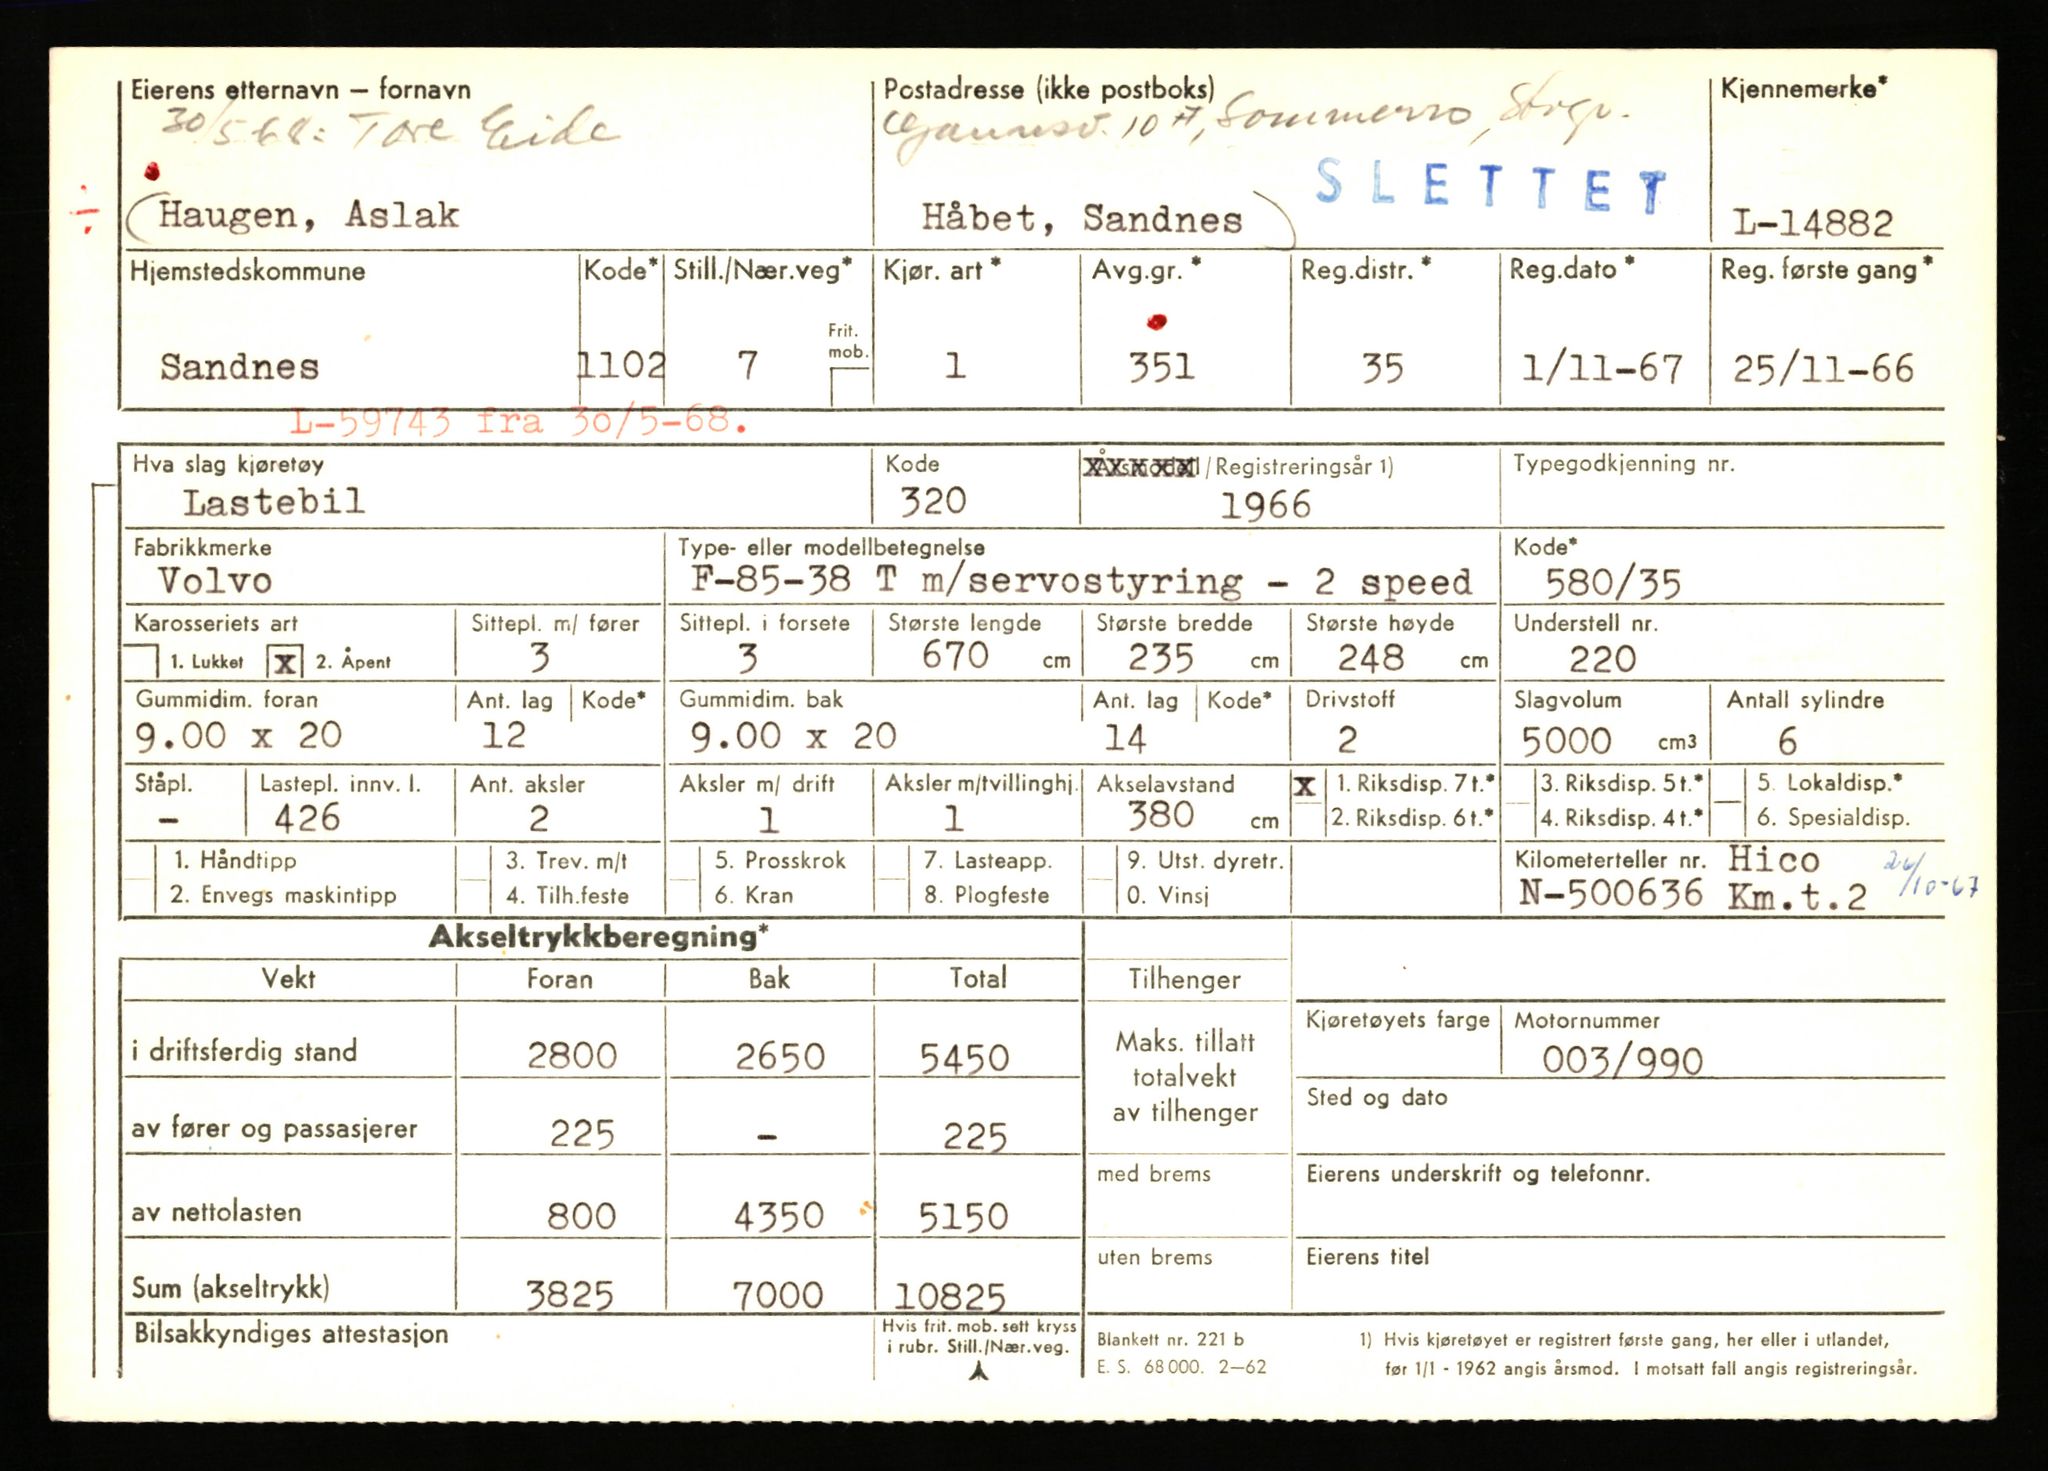 Eierens etternavn – fornavn Postadresse (ikke postboks) Kjennemerke*
30/5 68: Tore Eide 10 A, Sommerro, Stvgr.
SLETTET
(Haugen, Aslak Håbet, Sandnes) L-14882
Hjemstedskommune Kode* Still./Nær.veg* Kjør. art* Avg.gr.* Reg.distr.* Reg.dato* Reg. første gang*
Frit. mob.
Sandnes 1102 7 1 351 35 1/11-67 25/11-66
L-59743 fra 30/5-68.
Hva slag kjøretøy Kode Årsmodell/Registreringsår 1) Typegodkjenning nr.
Lastebil 320 1966
Fabrikkmerke Type- eller modellbetegnelse Kode*
Volvo F-85-38 T m/servostyring - 2 speed 580/35
Karosseriets art Sittepl. m/ fører Sittepl. i forsete Største lengde Største bredde Største høyde Understell nr.
1. Lukket X 2. Åpent 3 3 670 cm 235 cm 248 cm 220
Gummidim. foran Ant. lag Kode* Gummidim. bak Ant. lag Kode* Drivstoff Slagvolum Antall sylindre
9.00 x 20 12 9.00 x 20 14 2 5000 cm3 6
Ståpl. Lastepl. innv. l. Ant. aksler Aksler m/ drift Aksler m/tvillinghj. Akselavstand X 1. Riksdisp. 7 t.* 3. Riksdisp. 5 t.* 5. Lokaldisp.*
- 426 2 1 1 380 cm 2. Riksdisp. 6 t.* 4. Riksdisp. 4 t.* 6. Spesialdisp.
1. Håndtipp 3. Trev. m/t 5. Prosskrok 7. Lasteapp. 9. Utst. dyretr. Kilometerteller nr. Hico 26/10-67
2. Envegs maskintipp 4. Tilh.feste 6. Kran 8. Plogfeste 0. Vinsj N-500636 Km.t.2
Akseltrykkberegning*
Vekt Foran Bak Total Tilhenger
Kjøretøyets farge Motornummer
i driftsferdig stand 2800 2650 5450 Maks. tillatt totalvekt av tilhenger 003/990
Sted og dato
av fører og passasjerer 225 - 225
med brems Eierens underskrift og telefonnr.
av nettolasten 800 4350 5150
uten brems Eierens titel
Sum (akseltrykk) 3825 7000 10825
Bilsakkyndiges attestasjon Hvis frit. mob. sett kryss i rubr. Still./Nær.veg.
Blankett nr. 221 b 1) Hvis kjøretøyet er registrert første gang, her eller i utlandet,
E. S. 68 000. 2–62 før 1/1 - 1962 angis årsmod. I motsatt fall angis registreringsår.